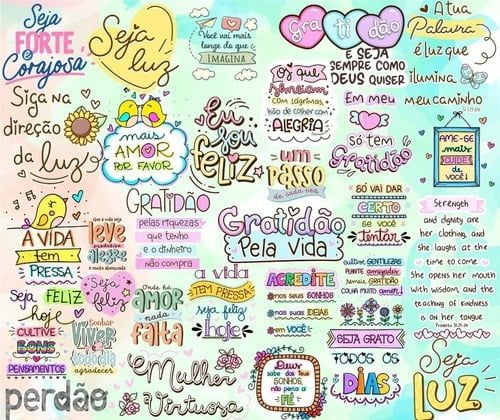 Seja
FORTE
e
Corajosa
Seja
luz
Você vai mais
longe do que
IMAGINA
Gratidão
E SEJA
SEMPRE COMO
DEUS QUISER
A tua
Palavra
é luz que
ilumina
meu caminho
Siga na
direção
da luz
mais
AMOR
POR FAVOR
Eu
sou
FELIZ
Os que
semeiam
com lágrimas,
hão de colher com
ALEGRIA
um
PASSO
de cada vez
Em meu
só tem
Gratidão
AME-SE
mais
CUIDE
DE
VOCÊ!
A VIDA
tem
PRESSA
Que a vida seja
leve
produtiva
alegre
GRATIDÃO
pelas riquezas
que tenho
e o dinheiro
não compra
Gratidão
Pela Vida
SÓ VAI DAR
CERTO
SE VOCÊ
Tentar
Strength
and dignity are
her clothing, and
she laughs at the
time to come
She opens her mouth
with wisdom, and the
teaching of kindness
is on her tongue.
Proverbs 31:25-26
Seja FELIZ
hoje
Seja
feliz
Onde há
AMOR
nada
falta
a vida
TEM PRESSA
seja feliz
hoje
ACREDITE
nos seus SONHOS
nas suas IDEIAS
em VOCÊ
cultive GENTILEZAS
PLANTE amizades
semeie GRATIDÃO
COLHA MUITO AMOR
CULTIVE
BONS
PENSAMENTOS
Sonhar
VIVER
todo dia
agradecer
SEJA GRATO
TODOS OS
DIAS
perdão
Mulher
Virtuosa
Deus
sabe dos teus
SONHOS,
não perca a
FÉ
Seja
LUZ